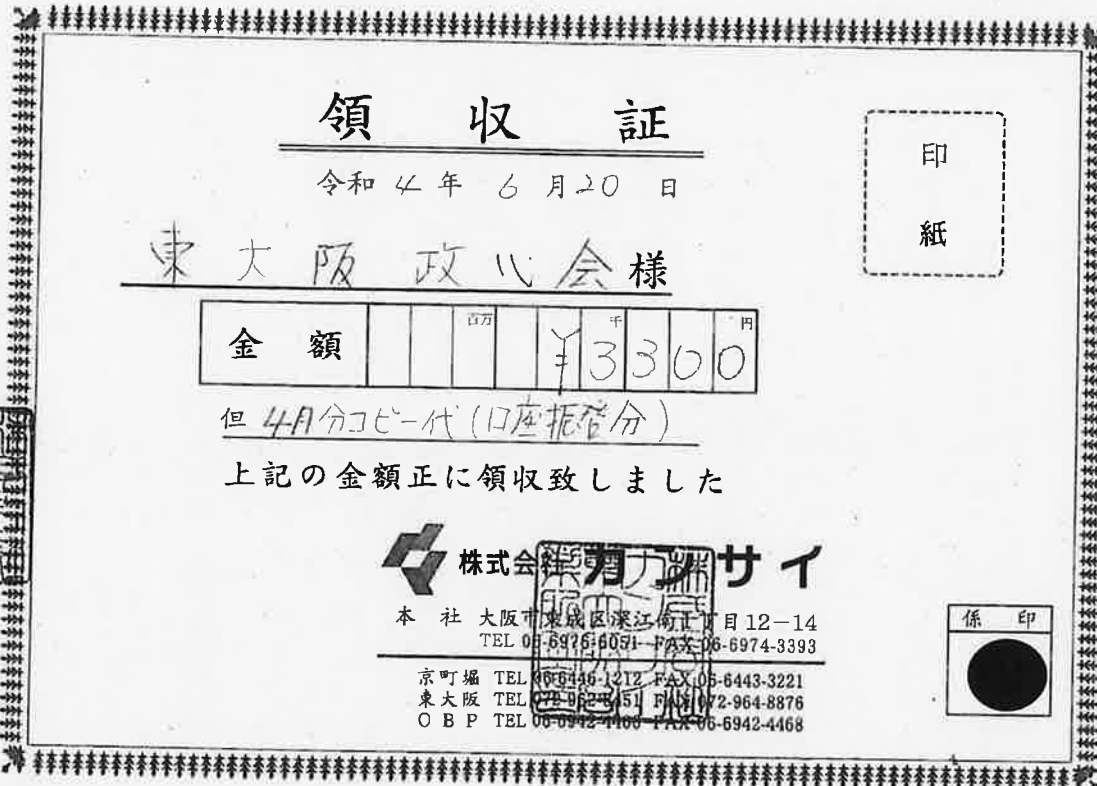 領収証
令和4年6月20日
印
紙
東大阪政心会様
金額 百万 千 円 ¥3300
但 4月分コピー代(口座振替分)
上記の金額正に領収致しました
株式会社カンサイ
本社 大阪市東成区深江南 丁目12-14
TEL 06-6976-6051 FAX 06-6974-3393
京町堀 TEL 06-6446-1212 FAX 06-6443-3221
東大阪 TEL 072-962- 451 FAX 072-964-8876
OBP TEL 06-6942-4468 FAX 06-6942-4468
係印